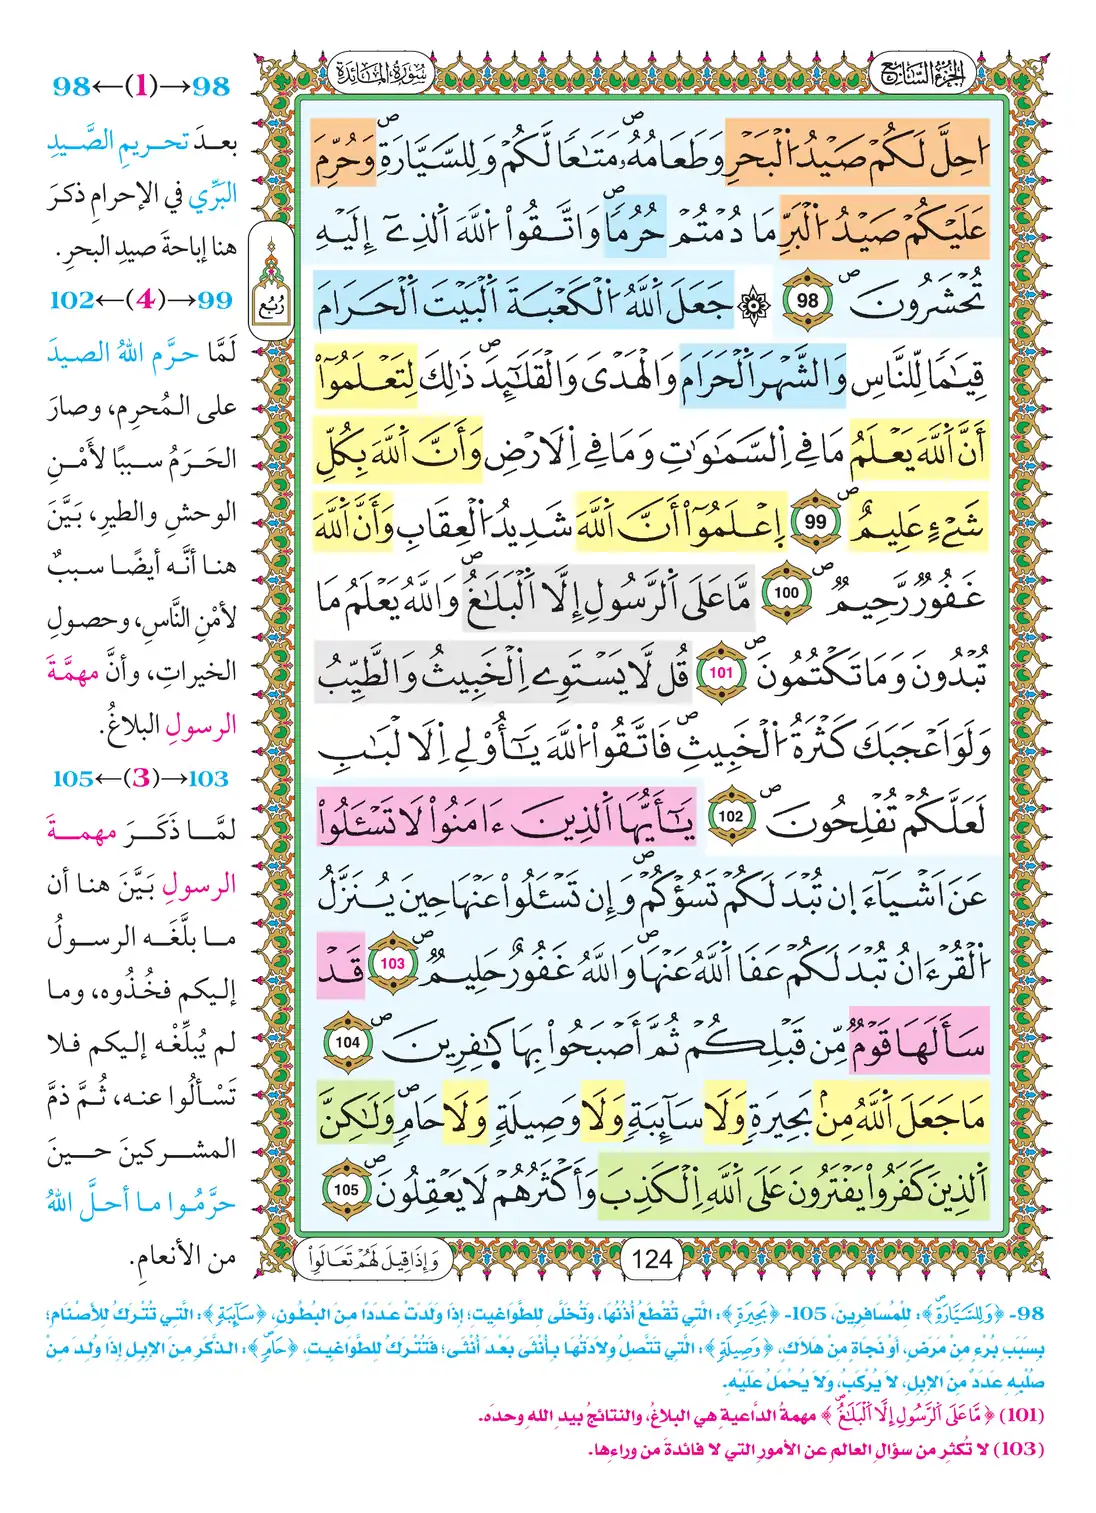 الجزء السابع
سورة المائدة
اُحِلَّ لَكُمْ صَيْدُ اُ۬لْبَحْرِ وَطَعَامُهُۥ مَتَٰعاٗ لَّكُمْ وَلِلسَّيَّارَةِۖ وَحُرِّمَ
عَلَيْكُمْ صَيْدُ اُ۬لْبَرِّ مَا دُمْتُمْ حُرُماٗۖ وَاتَّقُواْ اُ۬للَّهَ اَ۬لذِےٓ إِلَيْهِ
تُحْشَرُونَۖ 98 ۞ جَعَلَ اَ۬للَّهُ اُ۬لْكَعْبَةَ اَ۬لْبَيْتَ اَ۬لْحَرَامَ
قِيَٰماٗ لِّلنَّاسِ وَالشَّهْرَ اَ۬لْحَرَامَ وَالْهَدْىَ وَالْقَلَٰٓئِدَۖ ذَٰلِكَ لِتَعْلَمُوٓاْ
أَنَّ اَ۬للَّهَ يَعْلَمُ مَا فِے اِ۬لسَّمَٰوَٰتِ وَمَا فِے اِ۬لَارْضِ وَأَنَّ اَ۬للَّهَ بِكُلِّ
شَےْءٍ عَلِيمٌۖ 99 اِ۪عْلَمُوٓاْ أَنَّ اَ۬للَّهَ شَدِيدُ اُ۬لْعِقَابِ وَأَنَّ اَ۬للَّهَ
غَفُورٞ رَّحِيمٞۖ 100 مَّا عَلَى اَ۬لرَّسُولِ إِلَّا اَ۬لْبَلَٰغُۖ وَاللَّهُ يَعْلَمُ مَا
تُبْدُونَ وَمَا تَكْتُمُونَۖ 101 قُل لَّا يَسْتَوِے اِ۬لْخَبِيثُ وَالطَّيِّبُ
وَلَوَ اَعْجَبَكَ كَثْرَةُ اُ۬لْخَبِيثِۖ فَاتَّقُواْ اُ۬للَّهَ يَٰٓأُوْلِے اِ۬لَالْبَٰبِ
لَعَلَّكُمْ تُفْلِحُونَۖ 102 يَٰٓأَيُّهَا اَ۬لذِينَ ءَامَنُواْ لَا تَسْـَٔلُواْ
عَنَ اَشْيَآءَ ان تُبْدَ لَكُمْ تَسُؤْكُمْۖ وَإِن تَسْـَٔلُواْ عَنْهَا حِينَ يُنَزَّلُ
اُ۬لْقُرْءَانُ تُبْدَ لَكُمْ عَفَا اَ۬للَّهُ عَنْهَاۖ وَاللَّهُ غَفُورٌ حَلِيمٞۖ 103 قَدْ
سَأَلَهَا قَوْمٞ مِّن قَبْلِكُمْ ثُمَّ أَصْبَحُواْ بِهَا كٰ۪فِرِينَۖ 104
مَا جَعَلَ اَ۬للَّهُ مِنۢ بَحِيرَةٖ وَلَا سَآئِبَةٖ وَلَا وَصِيلَةٖ وَلَا حَامٖۖ وَلَٰكِنَّ
اَ۬لذِينَ كَفَرُواْ يَفْتَرُونَ عَلَى اَ۬للَّهِ اِ۬لْكَذِبَ وَأَكْثَرُهُمْ لَا يَعْقِلُونَۖ 105
رُبُع
124
وَإِذَا قِيلَ لَهُمْ تَعَالَوِاْ
98←(1)→98
بعدَ تحريمِ الصَّيدِ
البَرِّي في الإحرامِ ذكرَ
هنا إباحةَ صيدِ البحرِ.
102←(4)→99
لَمَّا حرَّم اللهُ الصيدَ
على المُحرِم، وصارَ
الحَرَمُ سببًا لأَمْنِ
الوحشِ والطيرِ، بَيَّنَ
هنا أنَّه أيضًا سببٌ
لأمْنِ النَّاسِ، وحصولِ
الخيراتِ، وأنَّ مهمَّةَ
الرسولِ البلاغُ.
105←(3)→103
لمَّا ذَكَرَ مهمةَ
الرسولِ بَيَّنَ هنا أن
ما بلَّغَه الرسولُ
إليكم فخُذُوه، وما
لم يُبلِّغْه إليكم فلا
تَسْألُوا عنه، ثُمَّ ذمَّ
المشركينَ حينَ
حرَّمُوا ما أحلَّ اللهُ
من الأنعامِ.
98- ﴿وَلِلسَّيَّارَةِۖ﴾: لِلْمُسَافِرِينَ، 105- ﴿بَحِيرَةٖ﴾: الَّتِي تُقْطَعُ أُذُنُهَا، وَتُخَلَّى لِلطَّوَاغِيتِ؛ إِذَا وَلَدَتْ عَدَدًا مِنَ البُطُونِ، ﴿سَآئِبَةٖ﴾: الَّتِي تُتْرَكُ لِلأَصْنَامِ؛
بِسَبَبِ بُرْءٍ مِنْ مَرَضٍ، أَوْ نَجَاةٍ مِنْ هَلَاكٍ، ﴿وَصِيلَةٖ﴾: الَّتِي تَتَّصِلُ وِلَادَتُهَا بِأُنْثَى بَعْدَ أُنْثَى؛ فَتُتْرَكُ لِلطَّوَاغِيتِ، ﴿حَامٖۖ﴾: الذَّكَرِ مِنَ الإِبِلِ إِذَا وُلِدَ مِنْ
صُلْبِهِ عَدَدٌ مِنَ الإِبِلِ، لَا يُرْكَبُ، وَلَا يُحْمَلُ عَلَيْهِ.
(101) ﴿مَّا عَلَى اَ۬لرَّسُولِ إِلَّا اَ۬لْبَلَٰغُۖ﴾ مهمةُ الدَّاعيةِ هي البلاغُ، والنتائجُ بيدِ اللهِ وحدَه.
(103) لا تُكثِر من سؤالِ العالمِ عن الأمورِ التي لا فائدةَ من وراءِها.